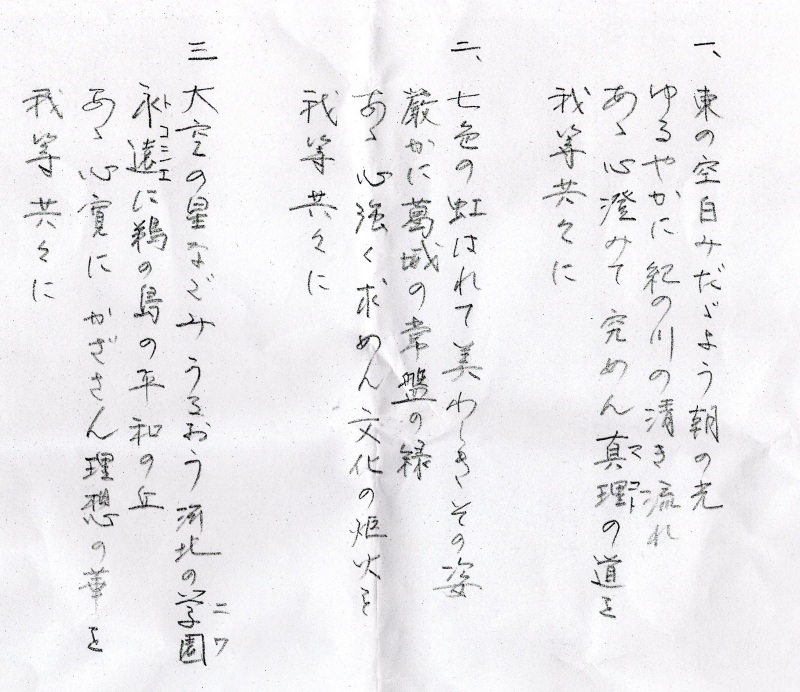 一、東の空白みだゞよう朝の光
ゆるやかに紀の川の清き流れ
あゝ心澄みて究めん真理の道を
マコト
我等共々に
二、七色の虹はれて美わしきその姿
厳かに葛城の常盤の緑
あゝ心強く求めん文化の炬火を
我等共々に
三 大空の星なごみうるおう河北の学園
ニワ
永遠に鵜の島の平和の丘
トコシエ
あゝ心寛に かざさん理想の華を
我等共々に